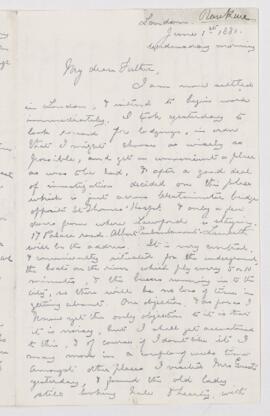 London.
June 1st 1881.
Wednesday morning
My dear Father,
I am now settled
in London, & intend to begin work
immediately. I took yesterday to
look round for lodgings, in order
that I might choose as wisely as
possible, and get as convenient a place
as was to be had, & after a good deal
of investigation decided on this place
which is just across Westminster Bridge
opposite St Thomas's Hospl. & only a few
doors from where is staying.
17 Palace road Albert Embankment Lambeth
will be the address. It is very central,
& conveniently situated for the underground,
the boats on the river which ply every 5 or 10
minutes, & the busses running into the
city, so there will be no loss of time in
getting about. One objection, & as far as I
know yet the only objection to it is that
it is noisy, but I shall get accustomed
to this, & of course if I don't like it I
may move in a couple of weeks time.
Amongst other places I visited Mrs
yesterday, & found the old lady
still looking hale & hearty, with